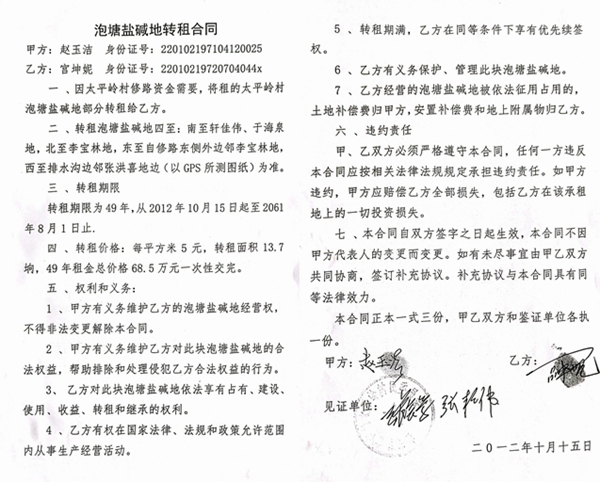 泡塘盐碱地转租合同
甲方：赵玉洁　身份证号：220102197104120025
乙方：宫坤妮　身份证号：22010219720704044x
一、因太平岭村修路资金需要，将租的太平岭村
泡塘盐碱地部分转租给乙方。
二、转租泡塘盐碱地四至：南至轩佳伟、于海泉
地，北至李宝林地，东至自修路东侧外边邻李宝林地，
西至排水沟边邻张洪喜地边（以GPS所测图纸）为准。
三、转租期限
转租期限为49年，从2012年10月15日起至2061
年8月1日止.
四、转租价格：每平方米5元，转租面积13.7
垧，49年租金总价格68.5万元一次性交完。
五、权利和义务：
1、甲方有义务维护乙方的泡塘盐碱地经营权，
不得非法变更解除本合同。
2、甲方有义务维护乙方对此块泡塘盐碱地的合
法权益，帮助排除和处理侵犯乙方合法权益的行为。
3、乙方对此块泡塘盐碱地依法享有占有、建设、
使用、收益、转租和继承的权利。
4、乙方有权在国家法律、法规和政策允许范围
内从事生产经营活动。
5、转租期满，乙方在同等条件下享有优先续签
权。
6、乙方有义务保护、管理此块泡塘盐碱地。
7、乙方经营的泡塘盐碱地被依法征用占用的，
土地补偿费归甲方，安置补偿费和地上附属物归乙方。
六、违约责任
甲、乙双方必须严格遵守本合同，任何一方违反
本合同应按相关法律法规规定承担违约责任。如甲方
违约，甲方应赔偿乙方全部损失，包括乙方在该承租
地上的一切投资损失。
七、本合同自双方签字之日起生效，本合同不因
甲方代表人的变更而变更。如有未尽事宜由甲乙双方
共同协商，签订补充协议。补充协议与本合同具有同
等法律效力。
本合同正本一式三份，甲乙双方和签证单位各执
一份。
甲方：赵玉洁　乙方：
见证单位：
二〇一二年十月十五日